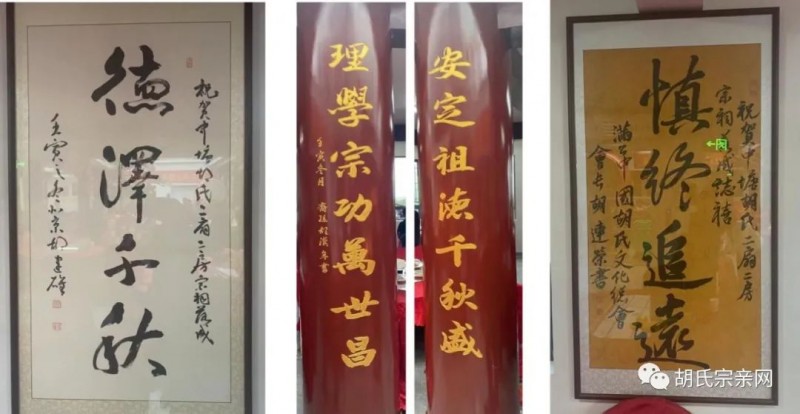 德澤千秋
祝賀中塘胡氏二扇二房宗祠落成
壬寅之冬北京胡建雄
安定祖德千秋盛
理學宗功萬世昌
壬寅冬月
慎終追遠
祝賀中塘胡氏二扇二房
宗祠落成誌禧
中國胡氏文化總會
會長胡連榮書
胡氏宗亲网